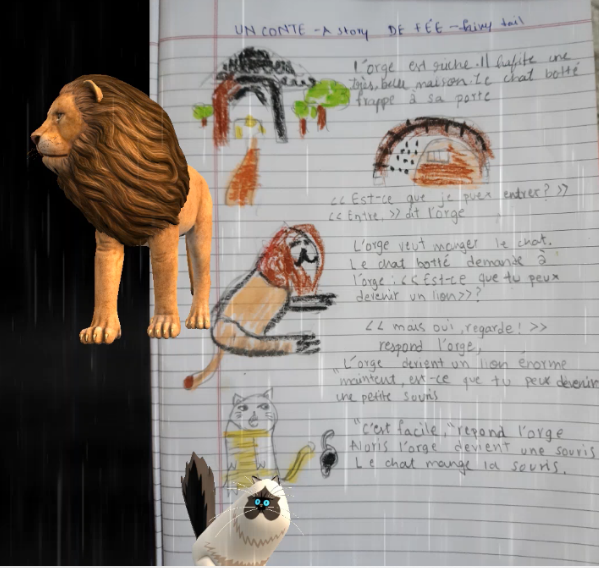 UN CONTE - A story DE FÉE - fairy tail
L'orge est riche. Il habite une
très belle maison. Le chat botté
frappe à sa porte
<< Est-ce que je peux entrer? >>
<< Entre, >> dit l'orge
L'orge veut manger le chat.
Le chat botté demande à
l'orge: << Est-ce que tu peux
devenir un lion >>?
<< mais oui, regarde! >>
respond l'orge,
"L'orge devient un lion enorme
"maintent, est-ce que tu peux devenir
une petite souris
"C'est facile," repond l'orge
Alors l'orge devient une souris.
Le chat mange la souris.